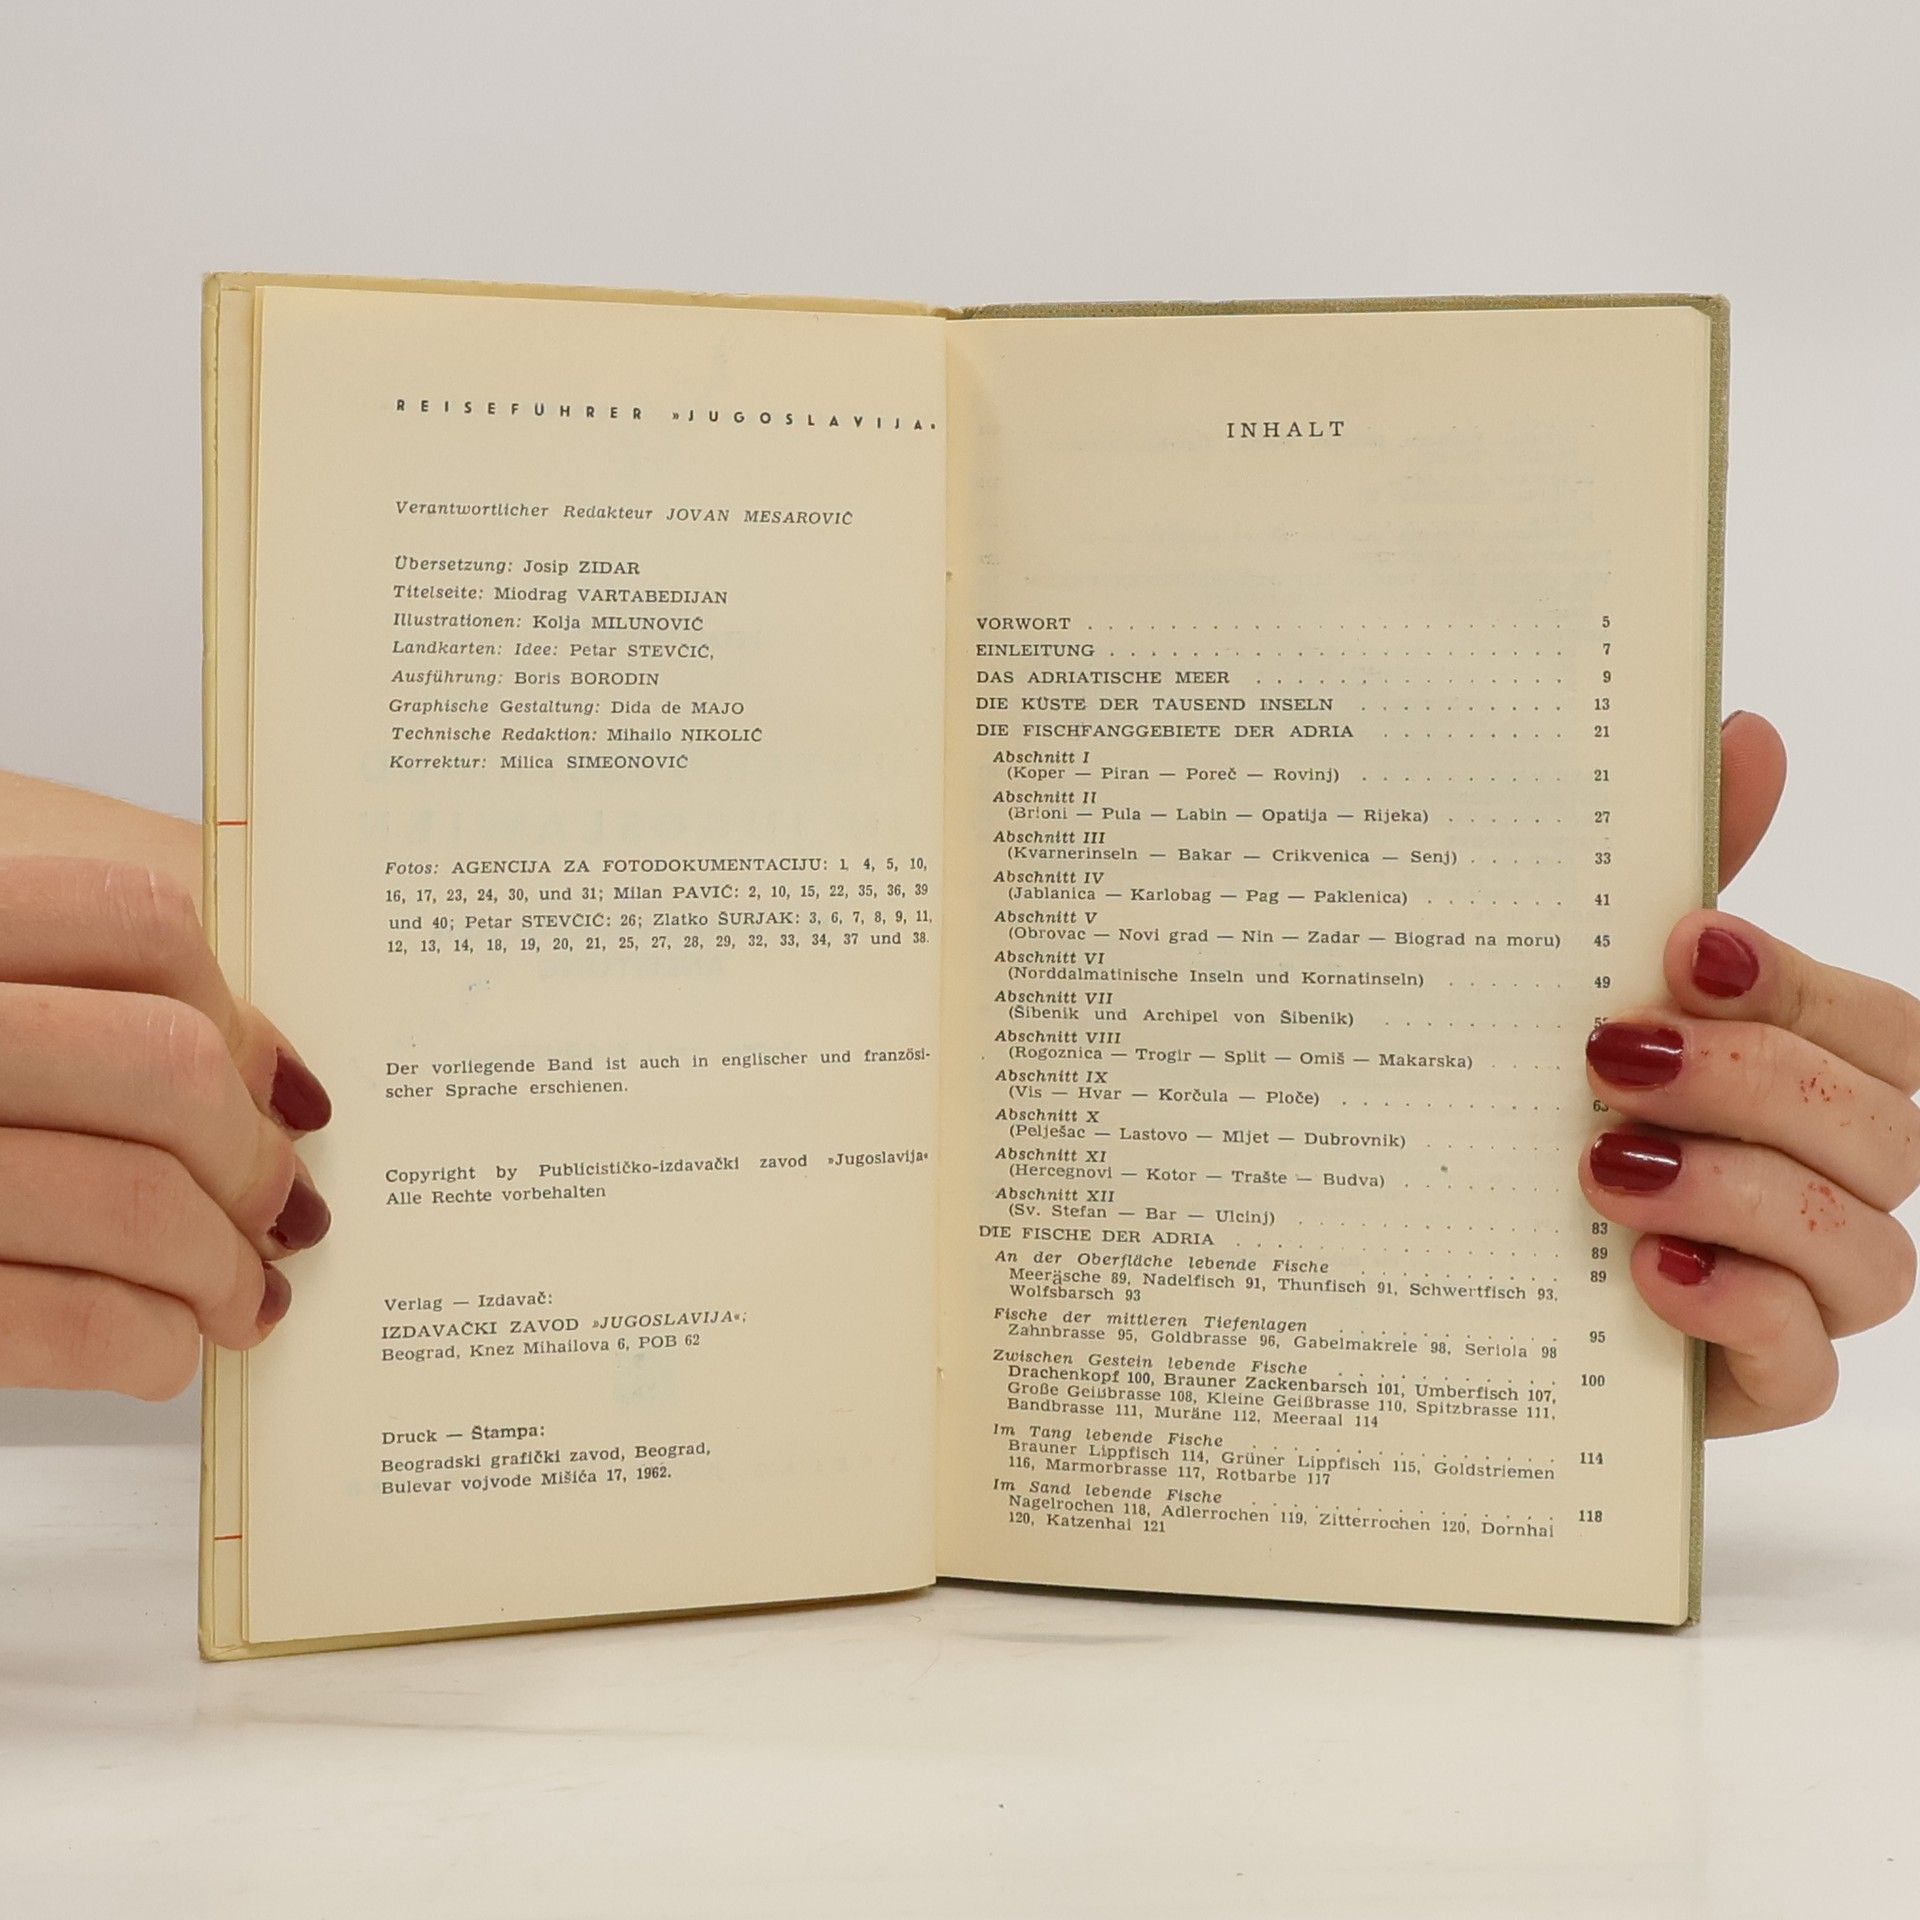 REISEFÜHRER »JUGOSLAVIJA«
Verantwortlicher Redakteur JOVAN MESAROVIĆ
Übersetzung: Josip ZIDAR
Titelseite: Miodrag VARTABEDIJAN
Illustrationen: Kolja MILUNOVIĆ
Landkarten: Idee: Petar STEVČIĆ,
Ausführung: Boris BORODIN
Graphische Gestaltung: Dida de MAJO
Technische Redaktion: Mihailo NIKOLIĆ
Korrektur: Milica SIMEONOVIĆ
Fotos: AGENCIJA ZA FOTODOKUMENTACIJU: 1, 4, 5, 10,
16, 17, 23, 24, 30, und 31; Milan PAVIĆ: 2, 10, 15, 22, 35, 36, 39
und 40; Petar STEVČIĆ: 26; Zlatko ŠURJAK: 3, 6, 7, 8, 9, 11,
12, 13, 14, 18, 19, 20, 21, 25, 27, 28, 29, 32, 33, 34, 37 und 38.
Der vorliegende Band ist auch in englischer und französi-
scher Sprache erschienen.
Copyright by Publicističko-izdavački zavod »Jugoslavija«
Alle Rechte vorbehalten
Verlag — Izdavač:
IZDAVAČKI ZAVOD »JUGOSLAVIJA«;
Beograd, Knez Mihailova 6, POB 62
Druck — Štampa:
Beogradski grafički zavod, Beograd,
Bulevar vojvode Mišića 17, 1962.
INHALT
VORWORT . . . . . . . . . . 5
EINLEITUNG . . . . . . . . . . 7
DAS ADRIATISCHE MEER . . . . . . . . . . 9
DIE KÜSTE DER TAUSEND INSELN . . . . . . . . . . 13
DIE FISCHFANGGEBIETE DER ADRIA . . . . . . . . . 21
Abschnitt I
(Koper — Piran — Poreč — Rovinj) . . . . . . . . . . 21
Abschnitt II
(Brioni — Pula — Labin — Opatija — Rijeka) . . . . . . 27
Abschnitt III
(Kvarnerinseln — Bakar — Crikvenica — Senj) . . . . . 33
Abschnitt IV
(Jablanica — Karlobag — Pag — Paklenica) . . . . . . . 41
Abschnitt V
(Obrovac — Novi grad — Nin — Zadar — Biograd na moru) 45
Abschnitt VI
(Norddalmatinische Inseln und Kornatinseln) . . . . . . 49
Abschnitt VII
(Šibenik und Archipel von Šibenik) . . . . . . . . .
Abschnitt VIII
(Rogoznica — Trogir — Split — Omiš — Makarska) . . . .
Abschnitt IX
(Vis — Hvar — Korčula — Ploče) . . . . . . . . . . 63
Abschnitt X
(Pelješac — Lastovo — Mljet — Dubrovnik) . . . . . . .
Abschnitt XI
(Hercegnovi — Kotor — Trašte — Budva) . . . . . . . .
Abschnitt XII
(Sv. Stefan — Bar — Ulcinj) . . . . . . . . . . 83
DIE FISCHE DER ADRIA . . . . . . . . . . 89
An der Oberfläche lebende Fische . . . . . . . . . . 89
Meeräsche 89, Nadelfisch 91, Thunfisch 91, Schwertfisch 93,
Wolfsbarsch 93
Fische der mittleren Tiefenlagen . . . . . . . . . . 95
Zahnbrasse 95, Goldbrasse 96, Gabelmakrele 98, Seriola 98
Zwischen Gestein lebende Fische . . . . . . . . . . 100
Drachenkopf 100, Brauner Zackenbarsch 101, Umberfisch 107,
Große Geißbrasse 108, Kleine Geißbrasse 110, Spitzbrasse 111,
Bandbrasse 111, Muräne 112, Meeraal 114
Im Tang lebende Fische . . . . . . . . . . 114
Brauner Lippfisch 114, Grüner Lippfisch 115, Goldstriemen
116, Marmorbrasse 117, Rotbarbe 117
Im Sand lebende Fische . . . . . . . . . . 118
Nagelrochen 118, Adlerrochen 119, Zitterrochen 120, Dornhai
120, Katzenhai 121